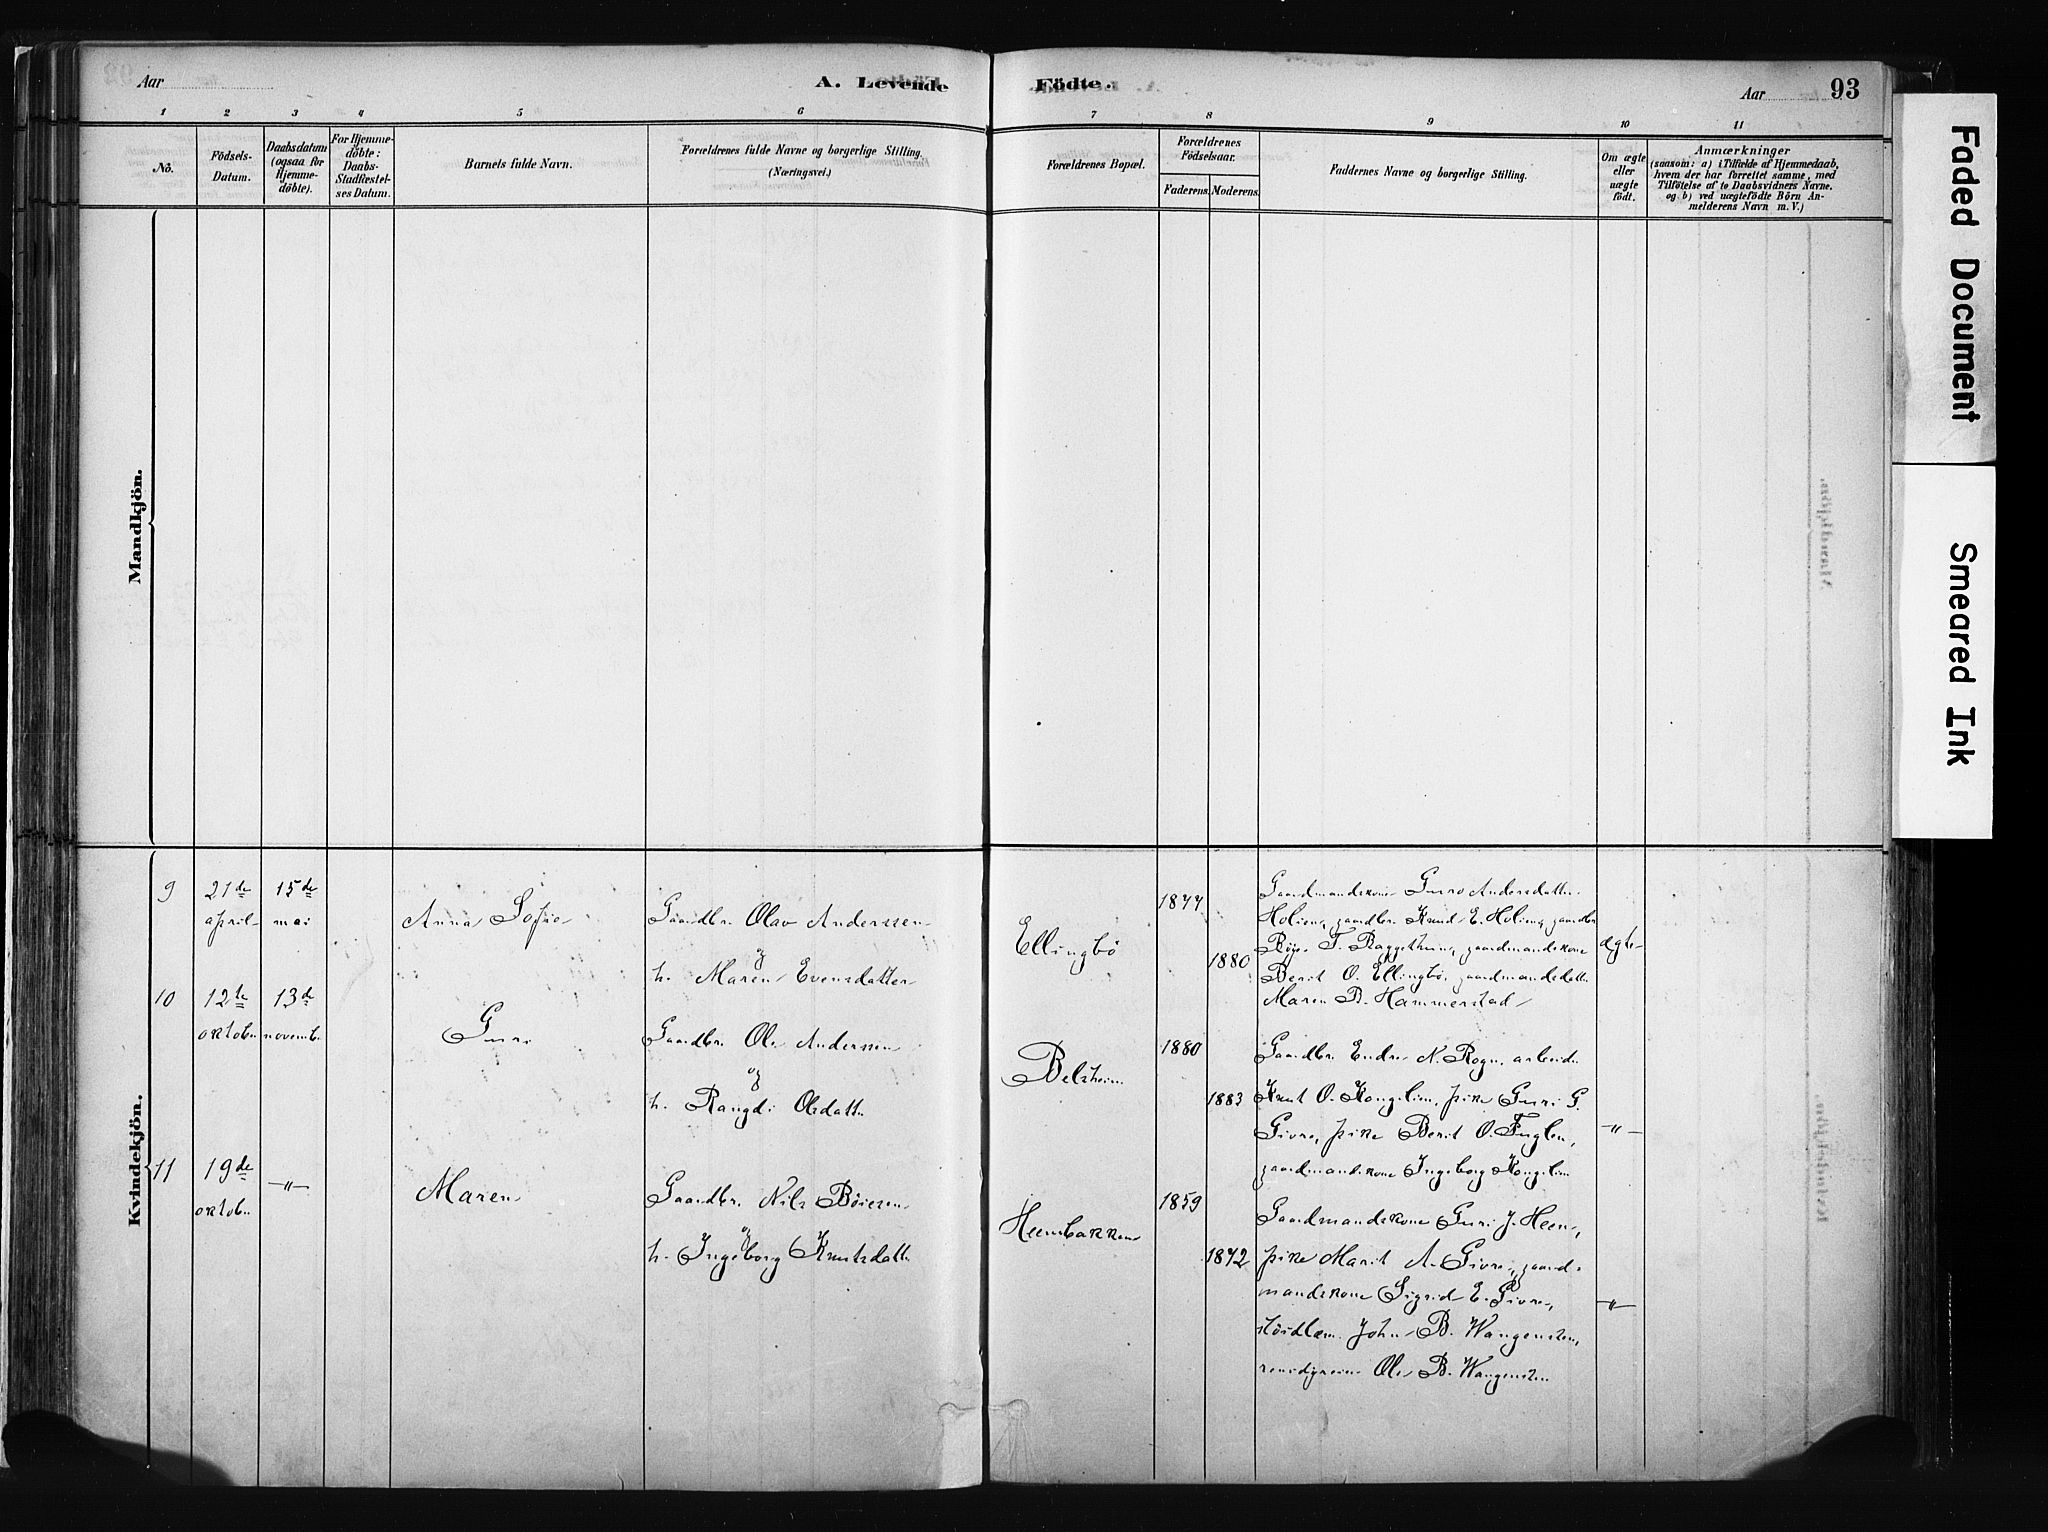 Aar
A. Levende
Födte.
Aar
93
1
2
3
4
5
6
7
8
9
10
11
No.
Födsels-
Datum.
Daabsdatum
(ogsaa for
Hjemme-
döbte).
For Hjemme-
döbte:
Daabs-
Stadfæstel-
ses Datum.
Barnets fulde Navn.
Forældrenes fulde Navne og borgerlige Stilling.
(Næringsvei.)
Forældrenes Bopæl.
Forældrenes
Födselsaar.
Faderens.
Moderens.
Faddernes Navne og borgerlige Stilling.
Om ægte
eller
uægte
födt.
Anmærkninger
(saasom: a) i Tilfælde af Hjemmedaab,
hvem der har forrettet samme, med
Tilföielse af to Daabsvidners Navne.
og b) ved uægtefödte Börn An-
melderens Navn m. V.)
Mandkjön.
Kvindekjön.
9
21de
april
15de
mai
Anna Sofie
Gaardbr. Olav Anderssen
og
h. Maren Evensdatter
Ellingbö
1877
1880
Gaardmandskone Guro Andersdatter
Holien, gaardbr. Knud E. Holien, gaardbr.
Böye T. Baggethun, gaardmandskone
Berit O. Ellingbö, gaardmandsdatter
Maren B. Hammerstad
ægte
10
12te
oktober
13de
novemb.
Guri
Gaardbr. Ole Anderssen
og
h. Rangdi Olsdatter
Belsheim
1880
1883
Gaardbr. Endre N. Rogn, arbeider
Knut O. Kongelien, pike Guri G.
Givre, pike Berit O. Fuglen,
gaardmandskone Ingeborg Kongelien
-"-
11
19de
oktober
-"-
Maren
Gaardbr. Nils Böiesen
og
h. Ingeborg Knutsdatter
Heenbakken
1859
1872
Gaardmandskone Guri J. Heen,
pike Marit A. Givre, gaard-
mandskone Sigrid E. Givre,
John B. Wangensten,
Ole B. Wangensten
-"-
Faded Document
Smeared Ink